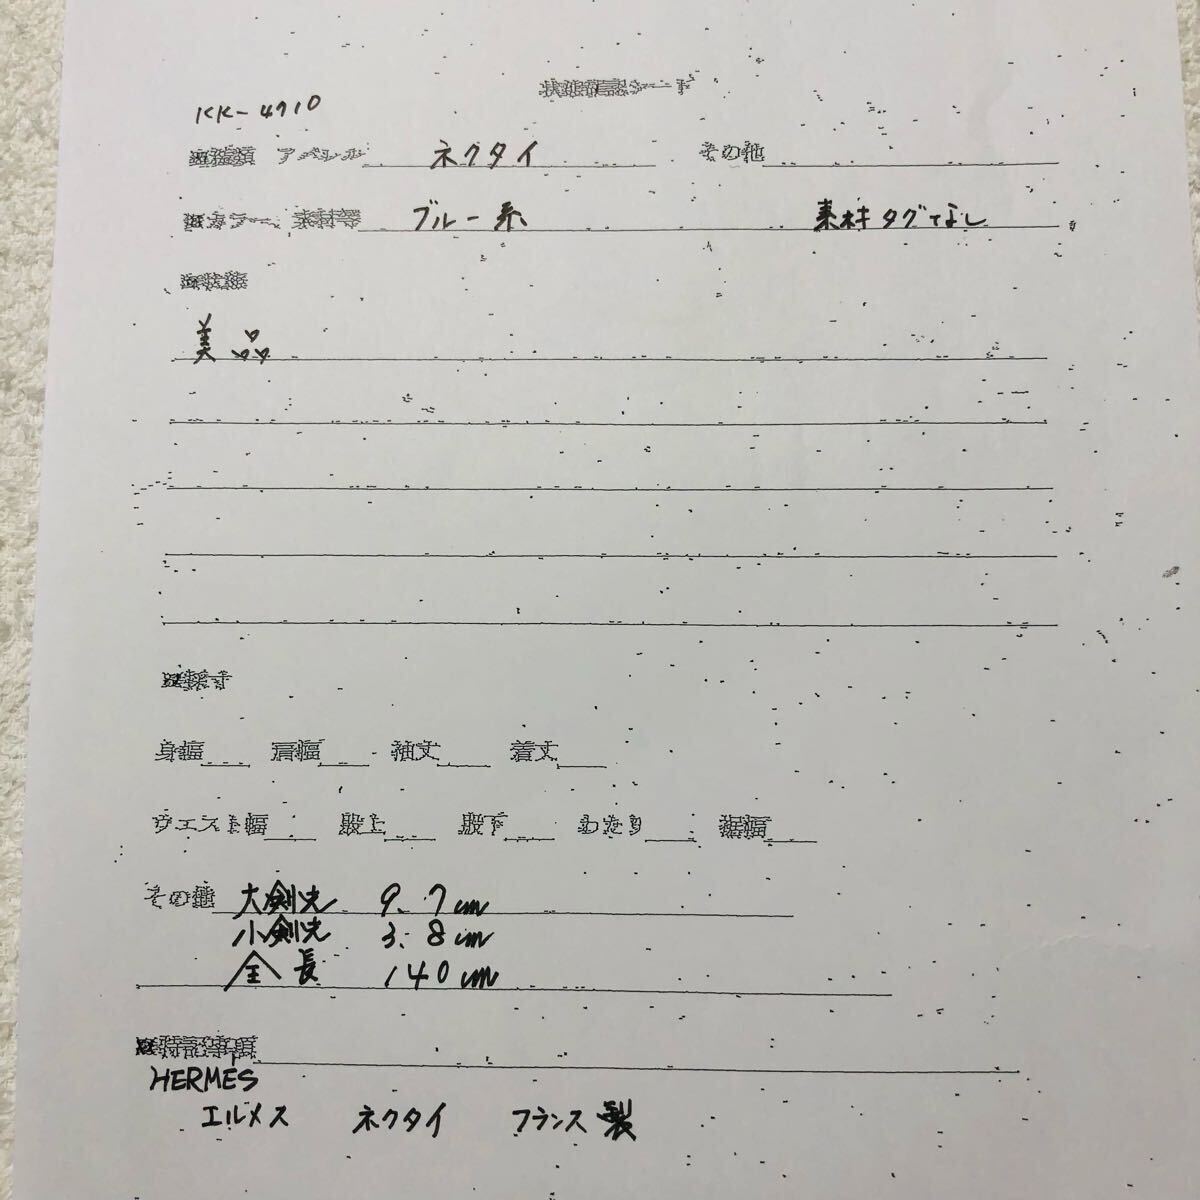 状態確認シート
KK-4710
■種類 アパレル ネクタイ その他
■カラー、素材等 ブルー系 素材タグなし
■状態
美品
■採寸
身幅 肩幅 袖丈 着丈
ウエスト幅 股上 股下 わたり 裾幅
その他 大剣先 9.7cm
小剣先 3.8cm
全長 140cm
■特記事項
HERMES
エルメス ネクタイ フランス製